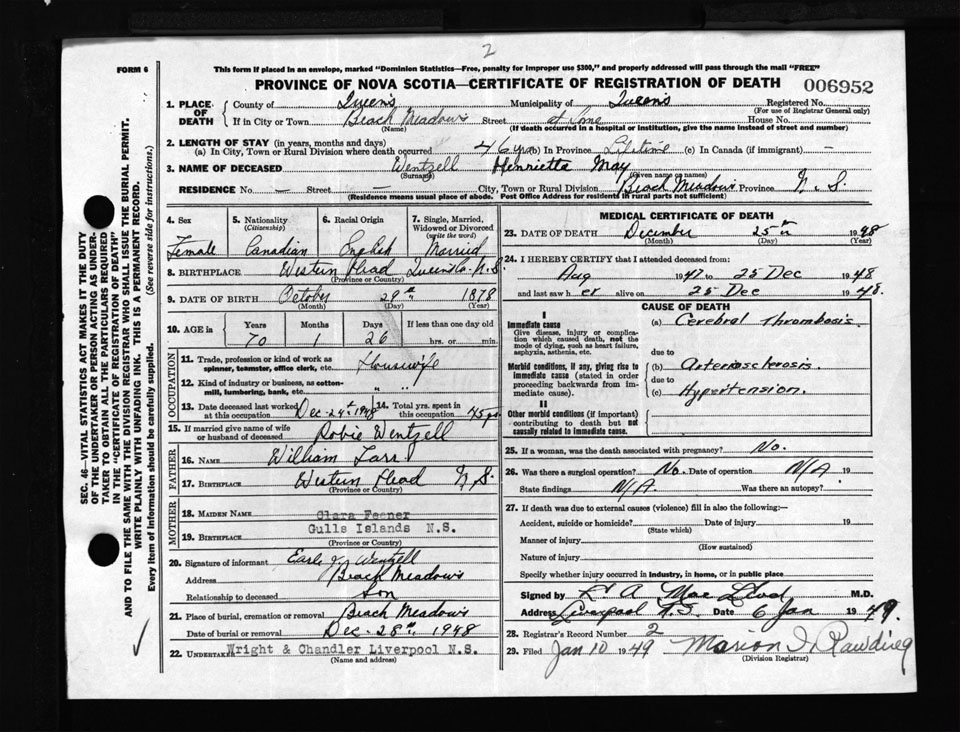 2
FORM 6
This form if placed in an envelope, marked "Dominion Statistics—Free, penalty for improper use $300," and properly addressed will pass through the mail "FREE"
PROVINCE OF NOVA SCOTIA—CERTIFICATE OF REGISTRATION OF DEATH
006952
1. PLACE OF DEATH
County of Queens Municipality of Queens Registered No.
(For use of Registrar General only)
If in City or Town Beach Meadows Street at home House No.
(Name) (If death occurred in a hospital or institution, give the name instead of street and number)
2. LENGTH OF STAY (in years, months and days)
(a) In City, Town or Rural Division where death occurred 46 yrs (b) In Province Lifetime (c) In Canada (if immigrant) —
3. NAME OF DECEASED Wentzell Henrietta May
(Surname) (Given name or names)
RESIDENCE No. — Street — City, Town or Rural Division Beach Meadows Province N.S.
(Residence means usual place of abode. Post Office Address for residents in rural parts not sufficient)
4. Sex
Female
5. Nationality
(Citizenship)
Canadian
6. Racial Origin
English
7. Single, Married, Widowed or Divorced
(write the word)
Married
8. BIRTHPLACE Western Head Queens Co. N.S.
(Province or Country)
9. DATE OF BIRTH October 29th 1878
(Month) (Day) (Year)
10. AGE in
Years Months Days If less than one day old
70 1 26 hrs. or min.
OCCUPATION
11. Trade, profession or kind of work as spinner, teamster, office clerk, etc. Housewife
12. Kind of industry or business, as cotton-mill, lumbering, bank, etc. " "
13. Date deceased last worked at this occupation Dec. 24th 1948
14. Total yrs. spent in this occupation 45 yrs
15. If married give name of wife or husband of deceased Robie Wentzell
FATHER
16. NAME William Tarr
17. BIRTHPLACE Western Head N.S.
(Province or Country)
MOTHER
18. MAIDEN NAME Clara Feener
19. BIRTHPLACE Gulls Islands N.S.
(Province or Country)
20. Signature of informant Earle J. Wentzell
Address Beach Meadows
Relationship to deceased Son
21. Place of burial, cremation or removal Beach Meadows
Date of burial or removal Dec. 28th, 1948
22. UNDERTAKER Wright & Chandler Liverpool N.S.
(Name and address)
MEDICAL CERTIFICATE OF DEATH
23. DATE OF DEATH December 25th 1948
(Month) (Day) (Year)
24. I HEREBY CERTIFY that I attended deceased from:
Aug 1947 to 25 Dec 1948
and last saw h er alive on 25 Dec 1948.
CAUSE OF DEATH
I
Immediate cause
Give disease, injury or complication which caused death, not the mode of dying, such as heart failure, asphyxia, asthenia, etc.
(a) Cerebral Thrombosis.
due to
Morbid conditions, if any, giving rise to immediate cause (stated in order proceeding backwards from immediate cause).
(b) Arteriosclerosis
due to
(c) Hypertension.
II
Other morbid conditions (if important) contributing to death but not causally related to immediate cause.
25. If a woman, was the death associated with pregnancy? No.
26. Was there a surgical operation? No. Date of operation N/A 19
State findings N/A Was there an autopsy?
27. If death was due to external causes (violence) fill in also the following:—
Accident, suicide or homicide? Date of injury 19
(State which)
Manner of injury
(How sustained)
Nature of injury
Specify whether injury occurred in industry, in home, or in public place
Signed by A Mac Leod M.D.
Address Liverpool N.S. Date 6 Jan 1949.
28. Registrar's Record Number 2
29. Filed Jan 10 1949 Marion
(Division Registrar)
SEC. 46—VITAL STATISTICS ACT MAKES IT THE DUTY
OF THE UNDERTAKER OR PERSON ACTING AS UNDERTAKER
TO OBTAIN ALL THE PARTICULARS REQUIRED
IN THE "CERTIFICATE OF REGISTRATION OF DEATH"
AND TO FILE THE SAME WITH THE DIVISION REGISTRAR WHO SHALL ISSUE THE BURIAL PERMIT.
WRITE PLAINLY WITH UNFADING INK. THIS IS A PERMANENT RECORD.
Every item of information should be carefully supplied. (See reverse side for instructions.)